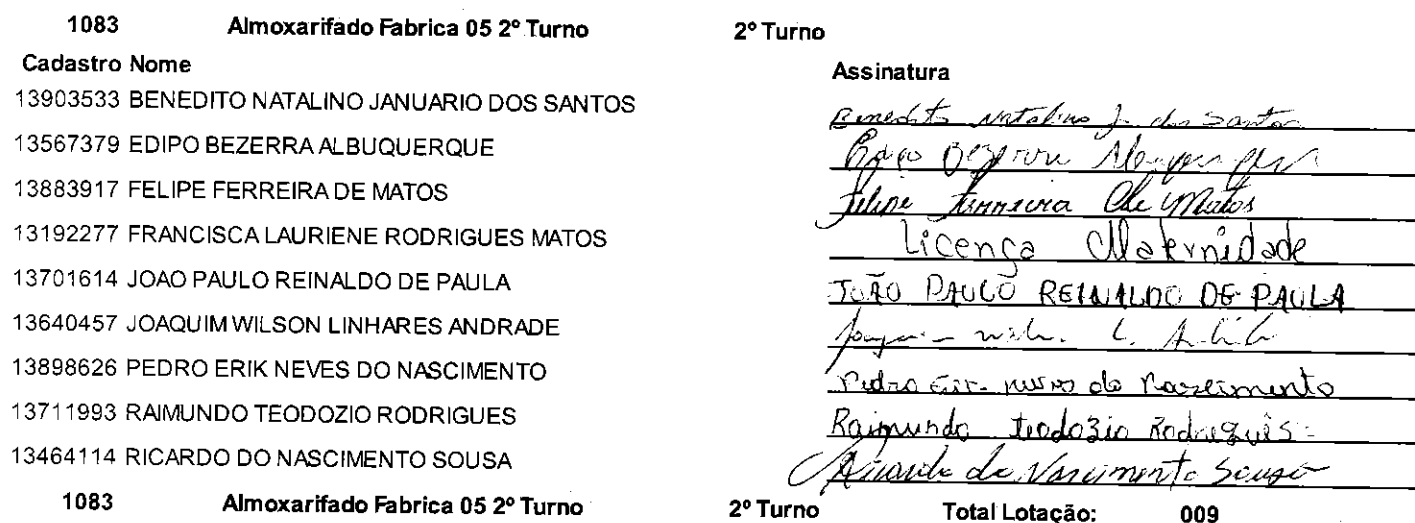 1083 Almoxarifado Fabrica 05 2º Turno 2º Turno
Cadastro Nome Assinatura
13903533 BENEDITO NATALINO JANUARIO DOS SANTOS Benedito Natalino J. dos Santos
13567379 EDIPO BEZERRA ALBUQUERQUE Bezerra
13883917 FELIPE FERREIRA DE MATOS Felipe Ferreira de Matos
13192277 FRANCISCA LAURIENE RODRIGUES MATOS Licença Maternidade
13701614 JOAO PAULO REINALDO DE PAULA JOÃO PAULO REINALDO DE PAULA
13640457 JOAQUIM WILSON LINHARES ANDRADE
13898626 PEDRO ERIK NEVES DO NASCIMENTO Pedro do Nascimento
13711993 RAIMUNDO TEODOZIO RODRIGUES Raimundo Teodozio Rodrigues
13464114 RICARDO DO NASCIMENTO SOUSA Ricardo do Nascimento Sousa
1083 Almoxarifado Fabrica 05 2º Turno 2º Turno Total Lotação: 009